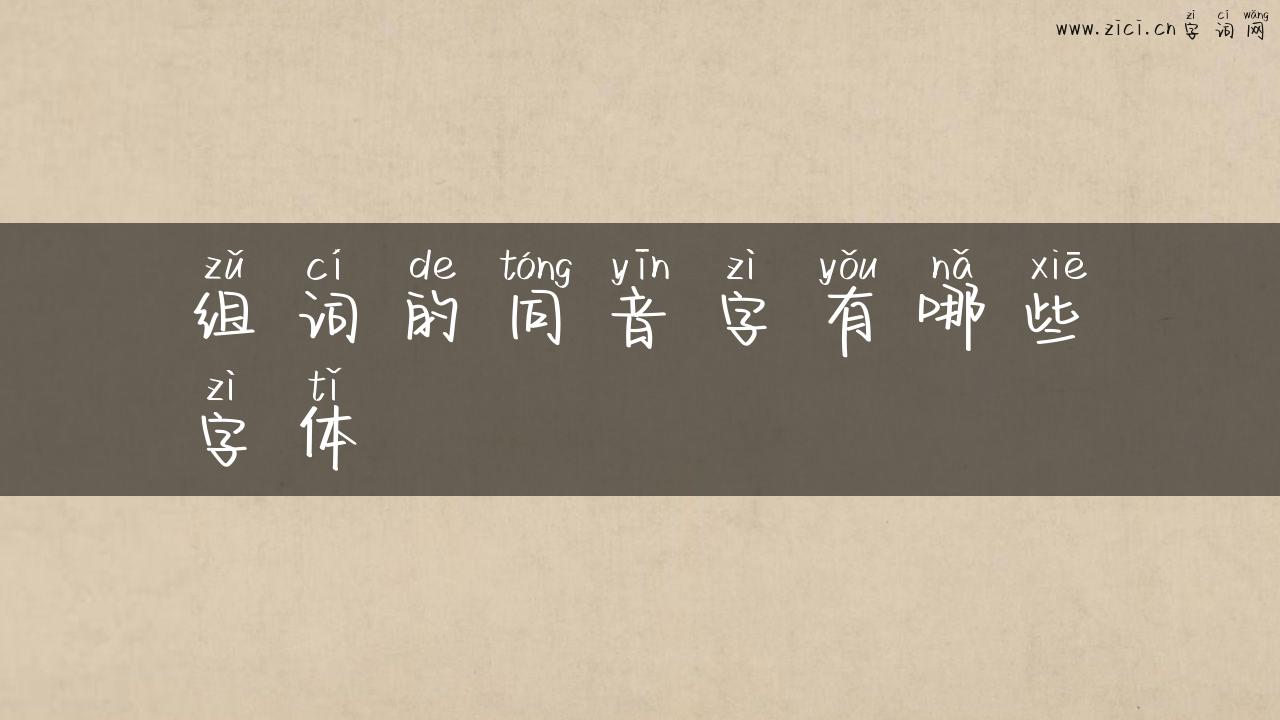 zì cí wǎng
www.zici.cn 字词网
zǔ cí de tóng yīn zì yǒu nǎ xiē
组词的同音字有哪些
zì tǐ
字体